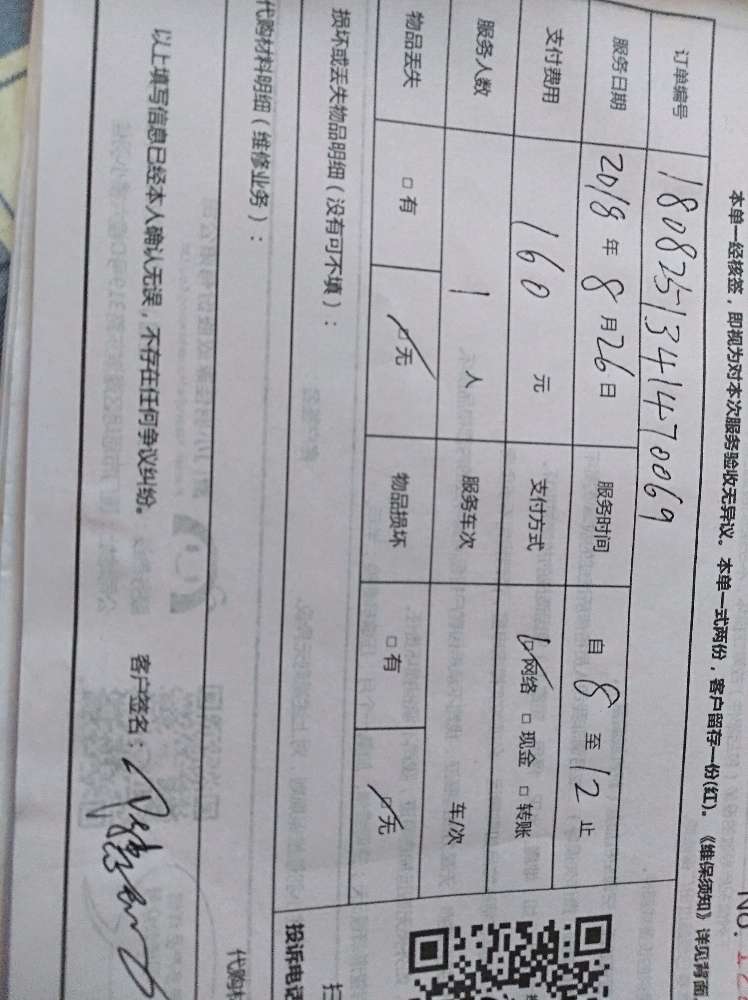 No.
本单一经核签，即视为对本次服务验收无异议。本单一式两份，客户留存一份(红)。《维保须知》详见背面
订单编号 1808251341470069
服务日期 2018年8月26日 服务时间 自8至12止
支付费用 160元 支付方式 □网络 □现金 □转账
服务人数 1人 服务车次 车/次
物品丢失 □有 □无 物品损坏 □有 □无
损坏或丢失物品明细（没有可不填）：
代购材料明细（维修业务）：
以上填写信息已经本人确认无误，不存在任何争议纠纷。 客户签名：
扫
投诉电话
代购材